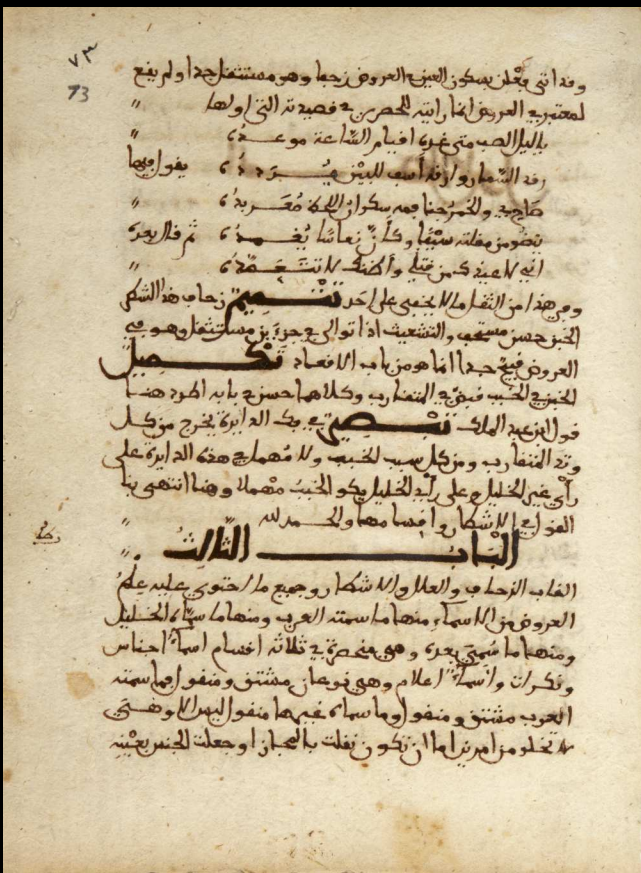 ٧٣
73
وقد اتى فعلن بسكون العين في العروض زحافا وهو مستثقل جدا ولم يقع
لمعتبر في العروض انما رايته للحصري في قصيدته التي اولها
يا ليل الصب متى غده اقيام الساعة موعده
رقد السمار وارقه أسف للبين يردده يقول فيها
صاح والخمر جنا فمه سكران اللحظ معربده
ينضو من مقلته سيفا وكأن نعاسا يغمده ثم قال بعده
اني لاعيذك من قتلي وأظنك لا تتعمده
وفي هذا من الثقل ما لا يخفى على احد تتميم زحاف هذا الشكل
الخبن حسن والتشعيث اذا توالى في جزءين مستثقل وهو في
العروض قبيح جدا انما هو من باب الاقعاد تكميل
الخبن في الخبب قبض في المتقارب وكلاهما حسن في بابه اطرد هنا
قول ابن عبد الملك في فك الدايرة يخرج من كل
وتد المتقارب ومن كل سبب الخبب ولا مهمل في هذه الدايرة على
رأي غير الخليل وعلى رأي الخليل يكون الخبب مهملا وهنا انتهى بنا
القول في الاشطار واقسامها والحمد لله
الباب الثالث
القاب الزحاف والعلل والاشطار وجميع ما احتوى عليه علم
العروض من الاسماء منها ما سمته العرب ومنها ما سماه الخليل
ومنها ما سمي بعده وهي منحصرة في ثلاثة اقسام اسماء اجناس
ونكرات واسماء اعلام وهي نوعان مشتق ومنقول فما سمته
العرب مشتق ومنقول وما سماه غيرها منقول ليس الا وهي
لا تخلو من امرين اما ان تكون نقلت بالمجاز او جعلت للجنس بعينه